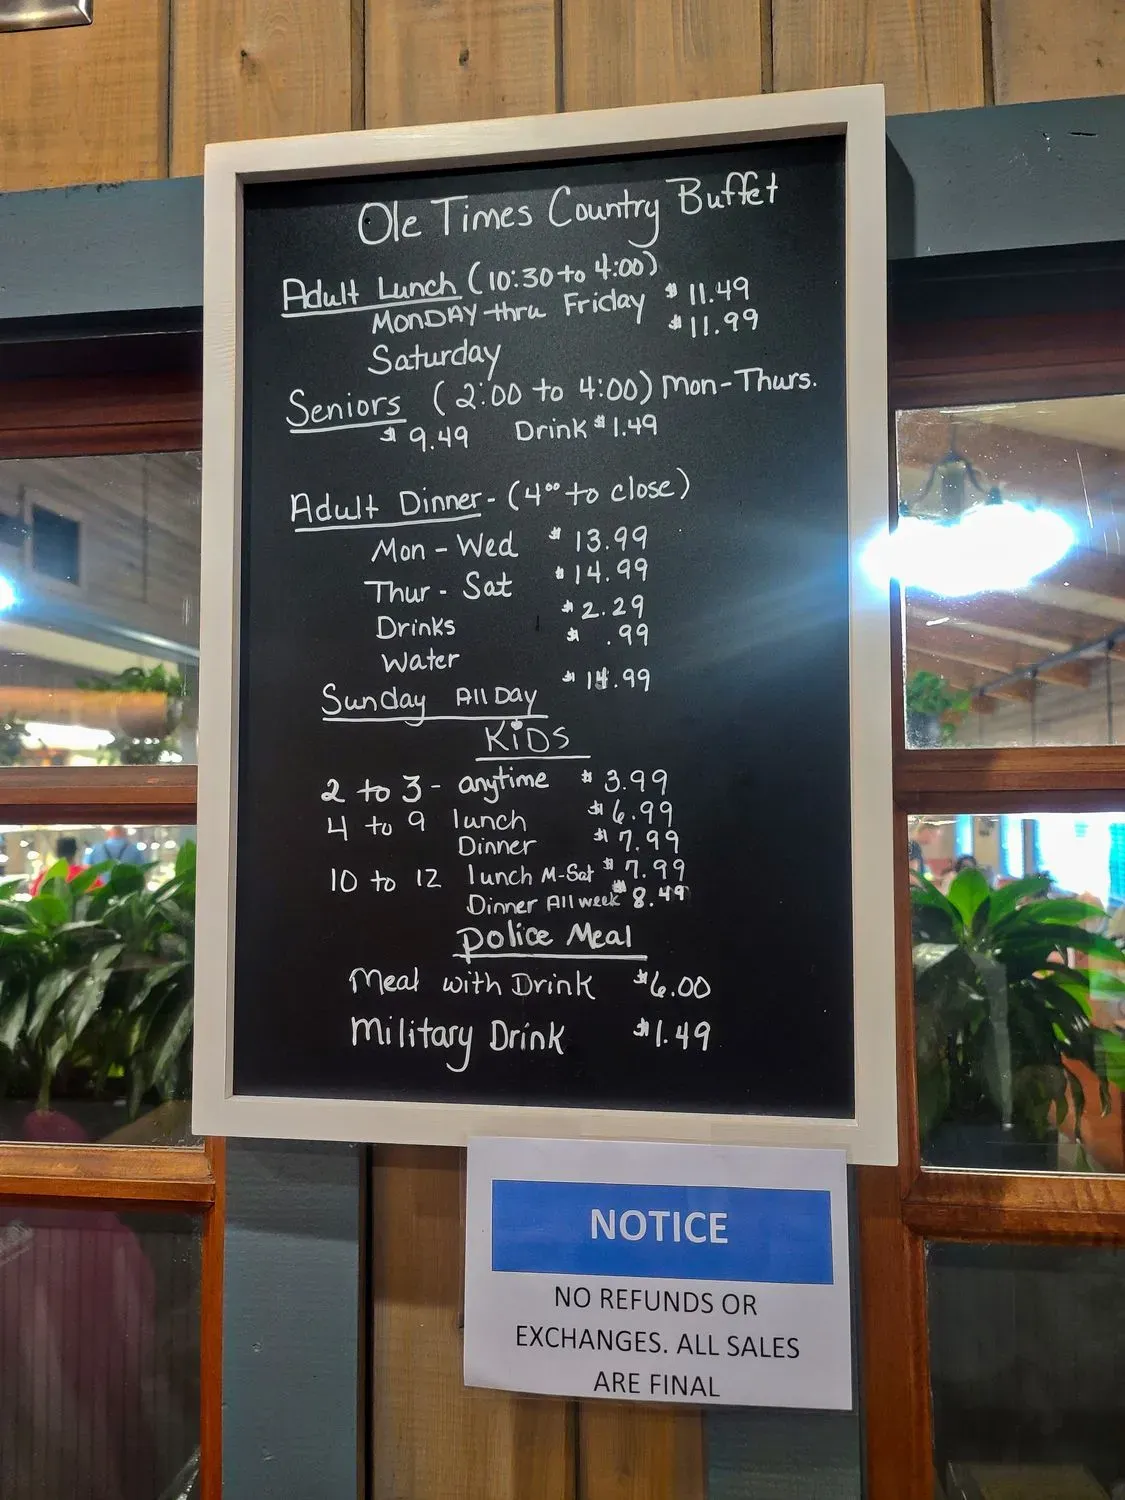 Ole Times Country Buffet
Adult Lunch (10:30 to 4:00)
MONDAY thru Friday $11.49
Saturday $11.99
Seniors (2:00 to 4:00) Mon-Thurs.
$9.49 Drink $1.49
Adult Dinner - (4⁰⁰ to close)
Mon - Wed $13.99
Thur - Sat $14.99
Drinks $2.29
Water $ .99
Sunday All Day $14.99
KiDS
2 to 3 - anytime $3.99
4 to 9 lunch $6.99
Dinner $7.99
10 to 12 lunch M-Sat $7.99
Dinner All week $8.49
Police Meal
Meal with Drink $6.00
Military Drink $1.49
NOTICE
NO REFUNDS OR
EXCHANGES. ALL SALES
ARE FINAL